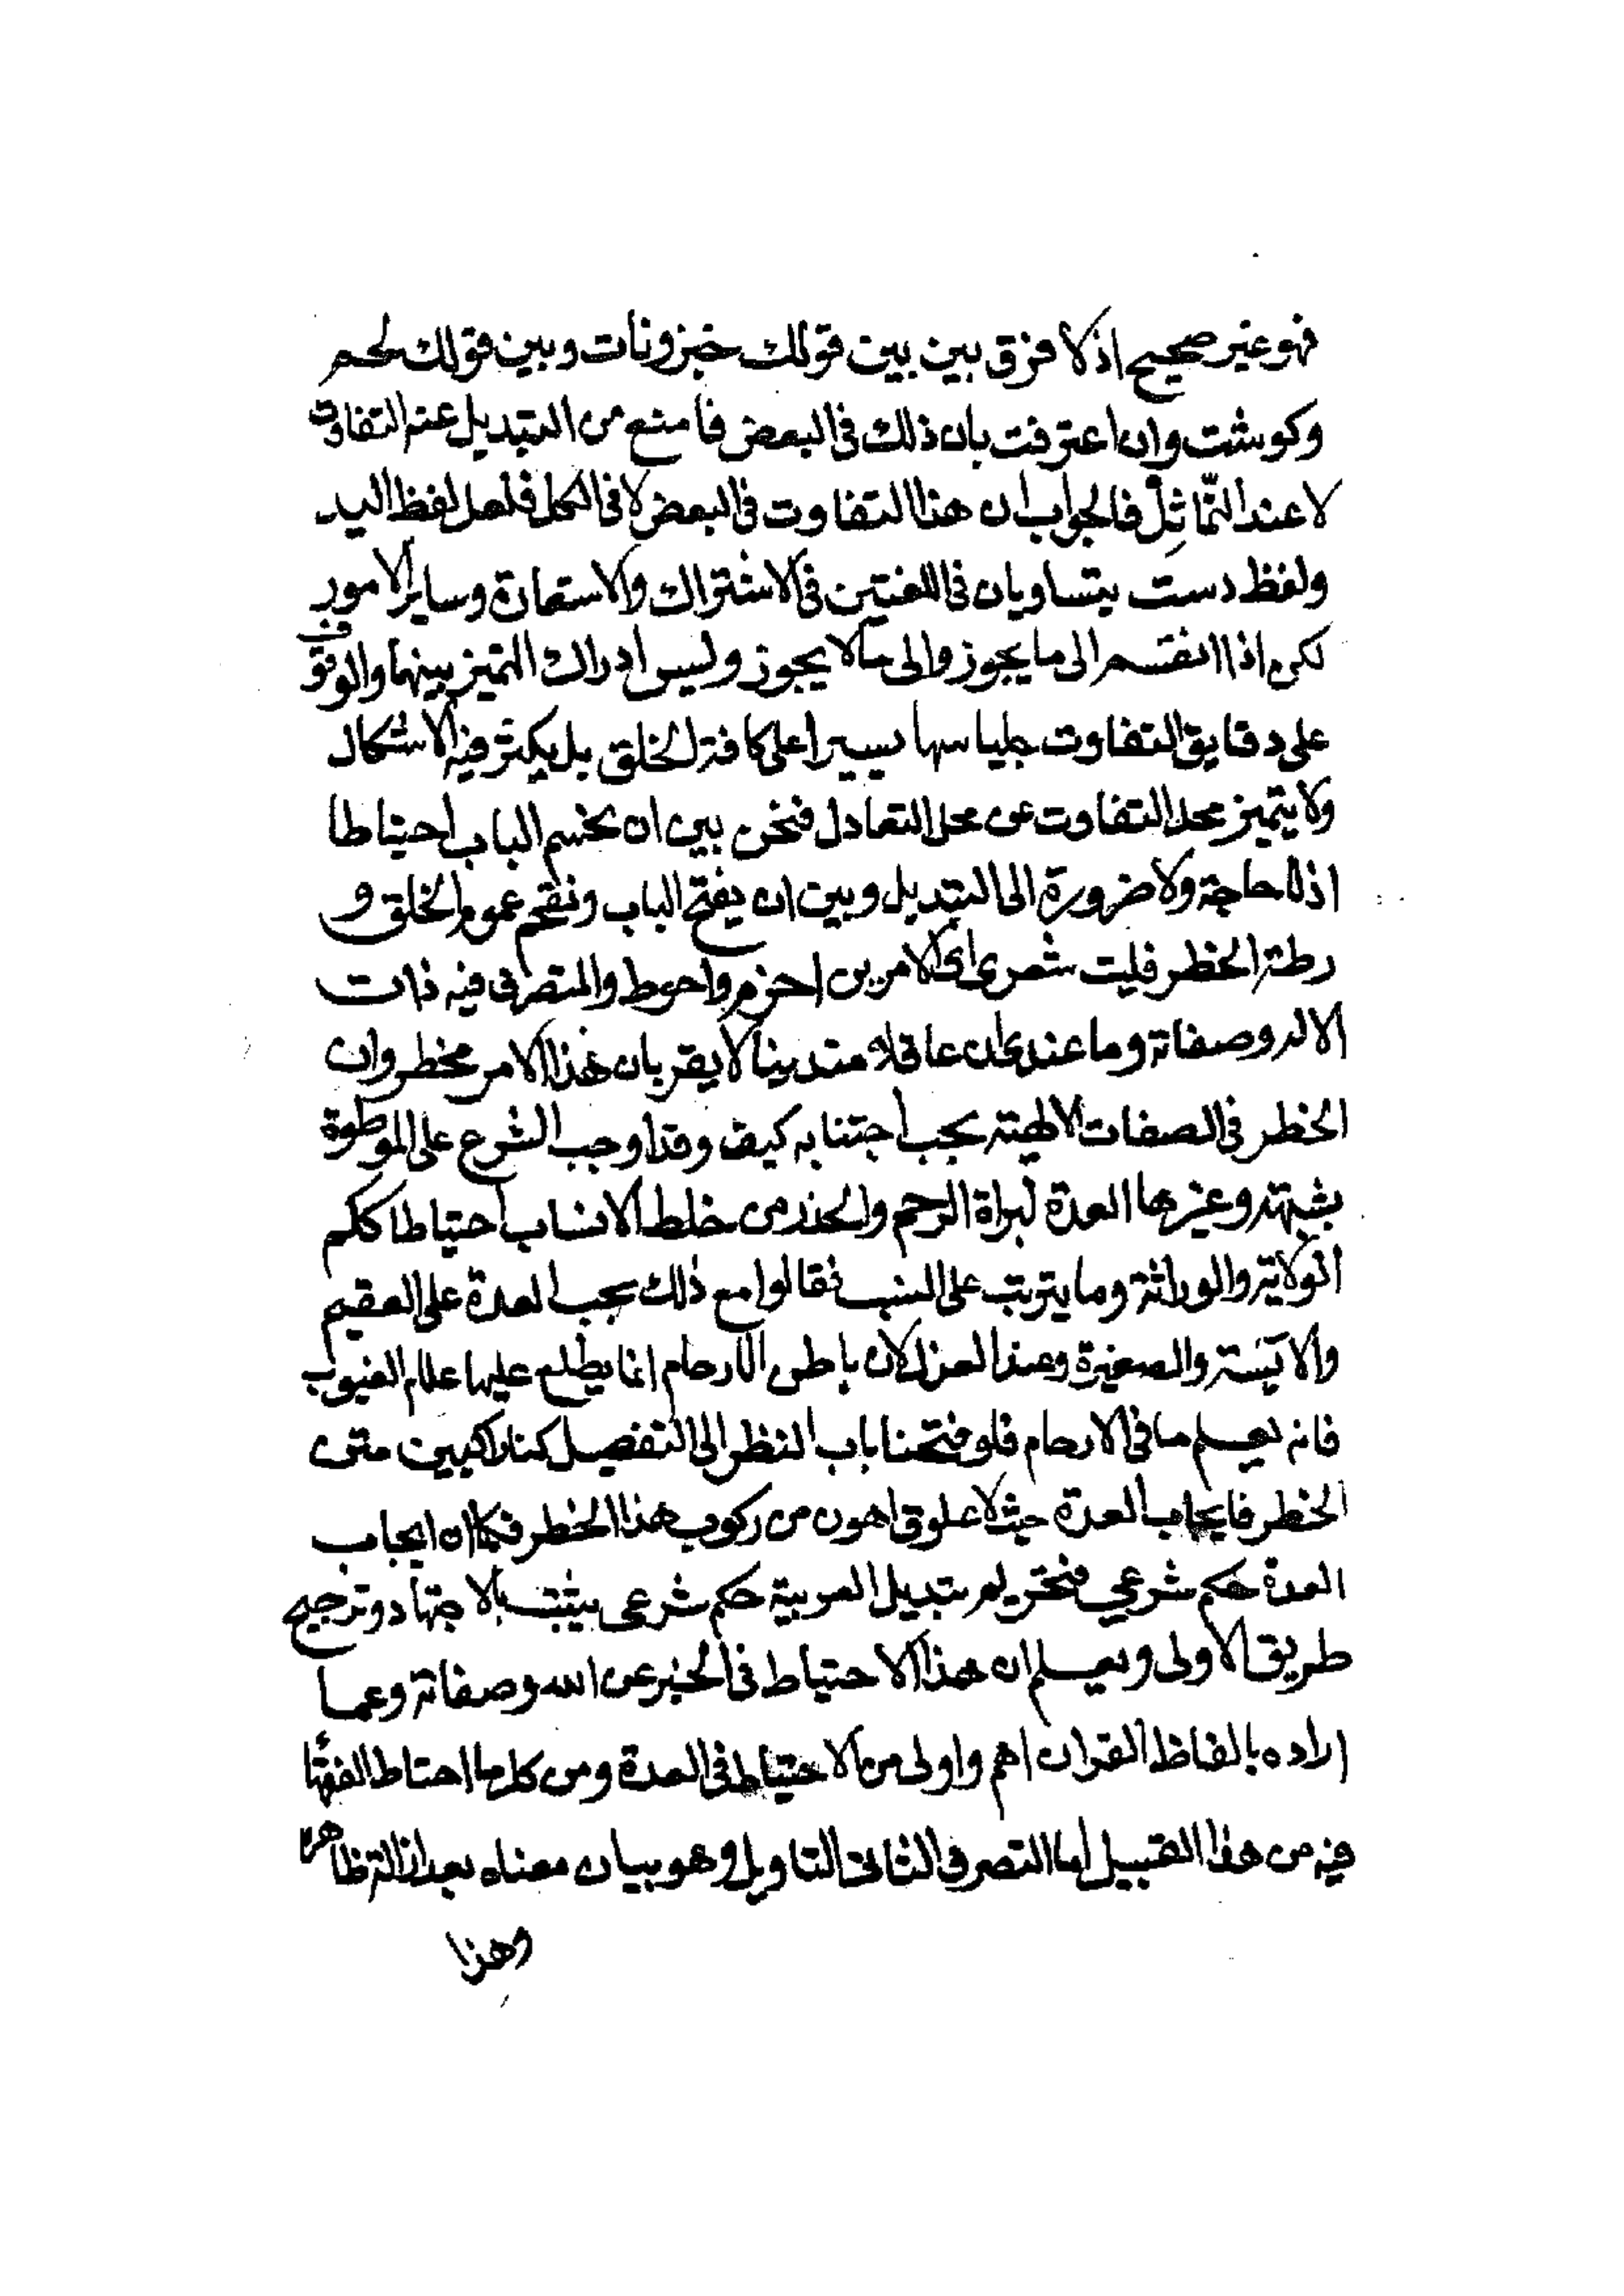 فهو غير صحيح اذ لا فرق بين بين قولك خبز ونان وبين قولك لحم
وكوشت وان اعترفت بان ذلك فى البعض فامنع من التبديل عند التفاوت
لا عند التّماثِل فالجواب ان هذا التفاوت فى البعض لا فى الكل فلعل لفظ اليد
ولفظ دست يتساويان فى اللغتين فى الاشتراك والاستعارة وساير الامور
لكن اذا انقسم الى ما يجوز والى ما لا يجوز وليس ادراك التميز بينهما والوقوف
على دقايق التفاوت جليا سهلا يسيرا على كافة الخلق بل يكثر فيه الاشكال
ولا يتميز محل التفاوت عن محل التعادل فنحن بين ان نحسم الباب احتياطا
اذ لا حاجة ولا ضرورة الى التبديل وبين ان يفتح الباب ونقحم عموم الخلق و
رطة الخطر فليت شعرى اى الامرين احزم واحوط والمتصرف فيه ذات
الاله وصفاته وما عندى ان عاقلا متدينا لا يقر بان هذا الامر مخطر وان
الخطر فى الصفات الالهية يجب اجتنابه كيف وقد اوجب الشرع على الموطوة
بشبهة وغيرها العدة لبراة الرحم والحذر من خلط الانساب احتياطا لحكم
الولاية والوراثة وما يترتب على النسب فقالوا مع ذلك يجب العدة على العقيم
والآيسة والصغيرة وعند العزل لان باطن الارحام انما يطلع عليها علام الغيوب
فانه يعلم ما فى الارحام فلو فتحنا باب النظر الى التفصيل كنا راكبين متن
الخطر فايجاب العدة حيث لا علوق اهون من ركوب هذا الخطر فكما ان ايجاب
العدة حكم شرعي فتحريم تبديل العربية حكم شرعى يثبت بالاجتهاد وترجيح
طريق الاولى ويعلم ان هذا الاحتياط فى الخبر عن الله وصفاته وعما
اراده بالفاظ القران اهم واولى من الاحتياط فى العدة ومن كل ما احتاط الفقهٓا
فيه من هذا القبيل اما التصرف الثانى التاويل وهو بيان معناه بعد ازالة ظاهره
وهذا